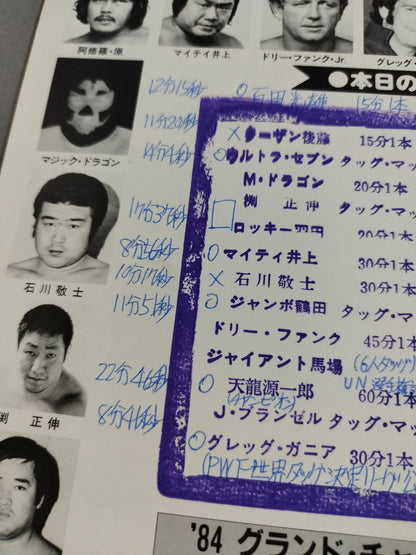 阿修羅・原
マイティ井上
ドリー・ファンクJr.
グレッグ・ガ
●本日の
マジック・ドラゴン
石川敬士
渕 正伸
12分15秒
14分4秒
17分37秒
8分56秒
10分17秒
11分51秒
22分46秒
8分46秒
○石田光雄 15分1本
×ターザン後藤 15分1本
○ウルトラ・セブン タッグ・マッ
M・ドラゴン 20分1本
渕 正伸 タッグ・マッ
□ロッキー羽田 20分1本
○マイティ井上 30分1本
×石川敬士 30分1本
○ジャンボ鶴田 タッグ・マ
ドリー・ファンク 45分1本
ジャイアント馬場 (6人タッグ)
○天龍源一郎 UN選手権 60分1本
(チャンピオン)
J・ブランゼル タッグ・マッ
○グレッグ・ガニア 30分1本
(PWF世界タッグ決定リーグ公
'84 グランド・チ